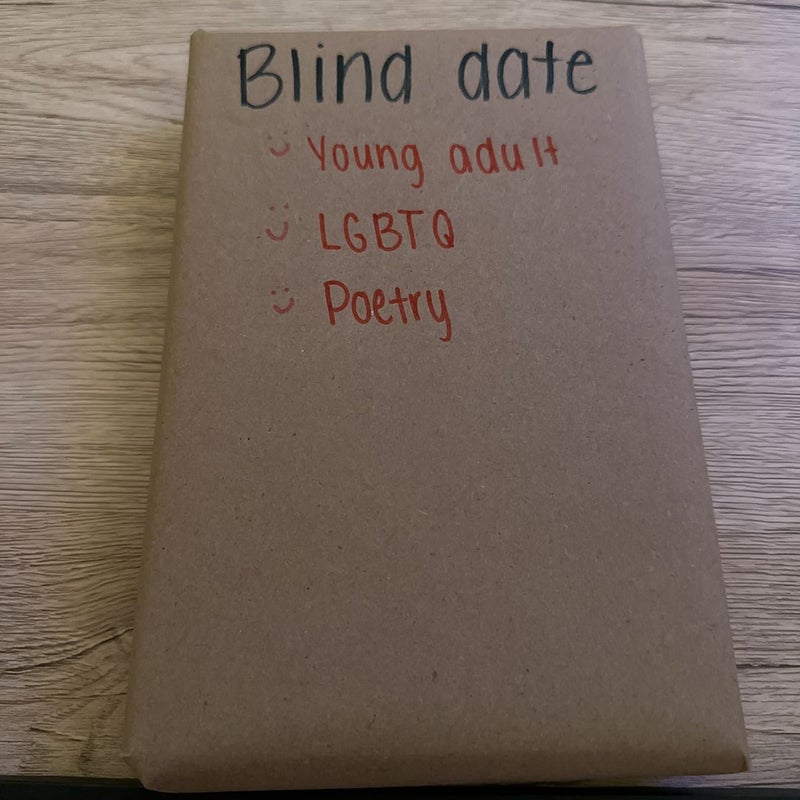 Blind date
Young adult
LGBTQ
Poetry